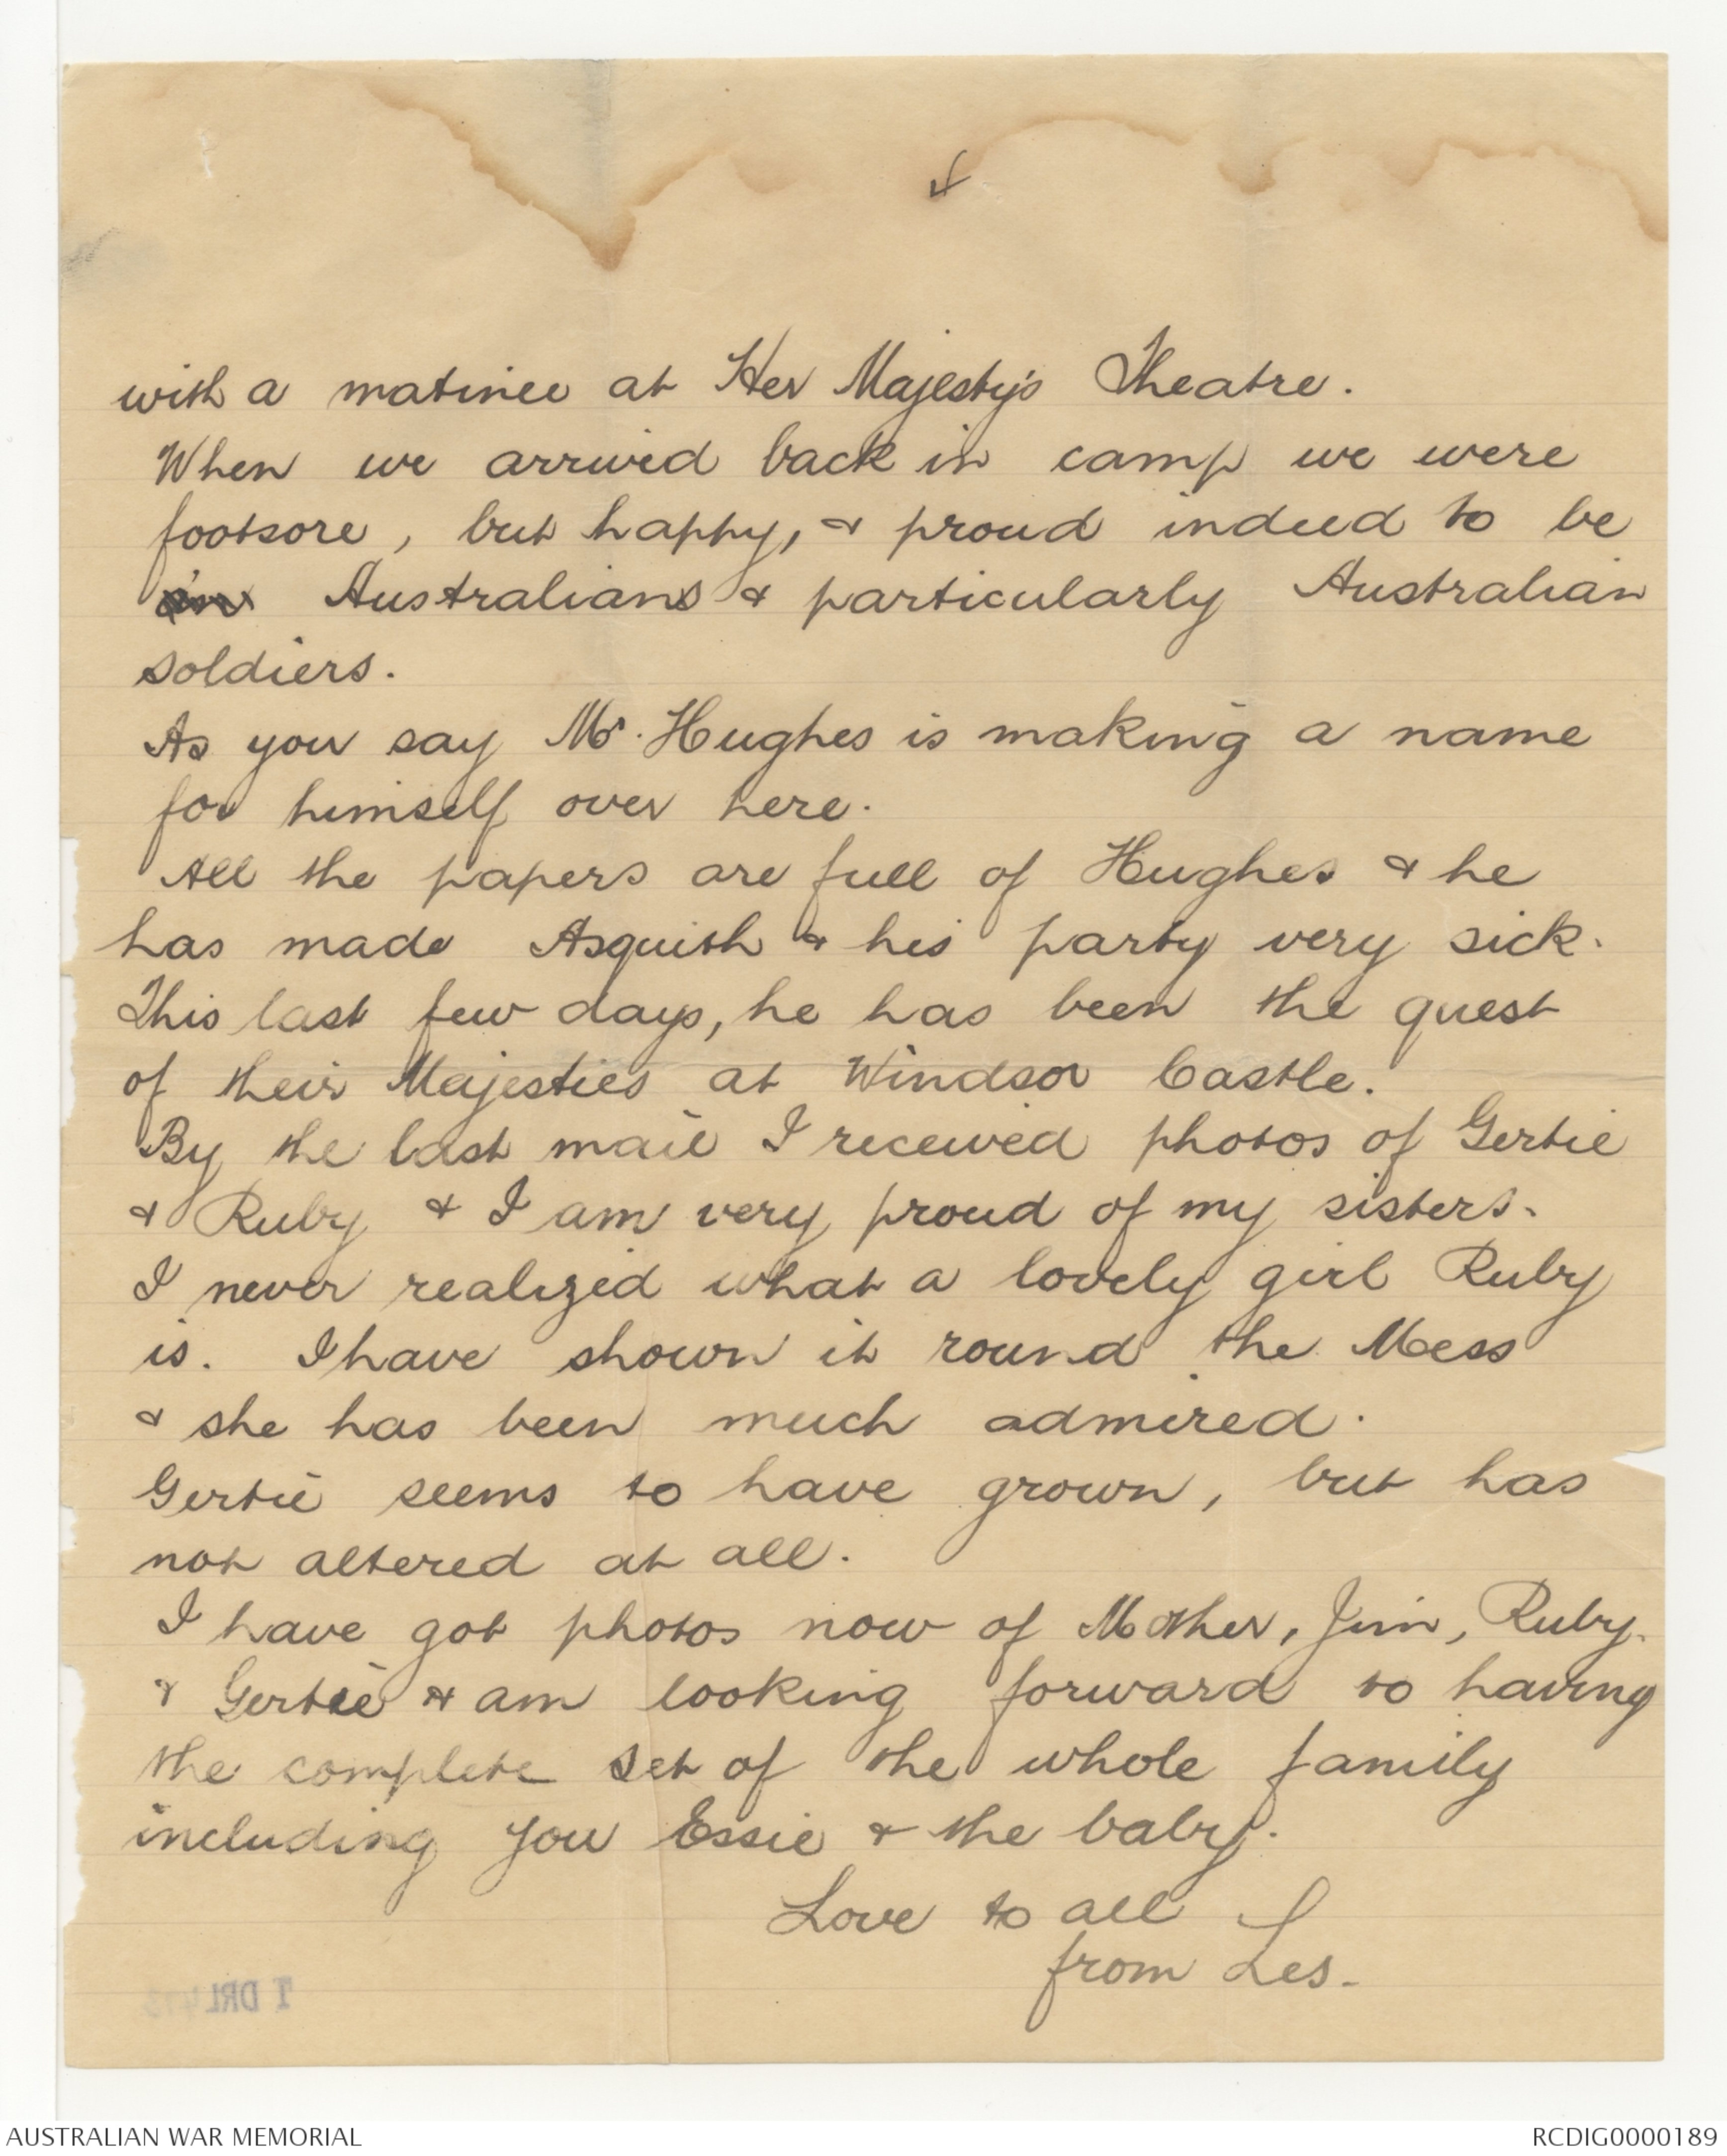 4
with a matinee at Her Majesty's Theatre.
When we arrived back in camp we were
footsore, but happy, & proud indeed to be
Australians & particularly Australian
soldiers.
As you say Mr. Hughes is making a name
for himself over here.
All the papers are full of Hughes & he
has made Asquith & his party very sick.
This last few days, he has been the guest
of their Majesties at Windsor Castle.
By the last mail I received photos of Gertie
& Ruby & I am very proud of my sisters.
I never realized what a lovely girl Ruby
is. I have shown it round the Mess
& she has been much admired.
Gertie seems to have grown, but has
not altered at all.
I have got photos now of Mother, Jim, Ruby.
& Gertie & am looking forward to having
the complete set of the whole family
including you Essie & the baby.
Love to all
from Les.
1 DRL
AUSTRALIAN WAR MEMORIAL
RCDIG0000189